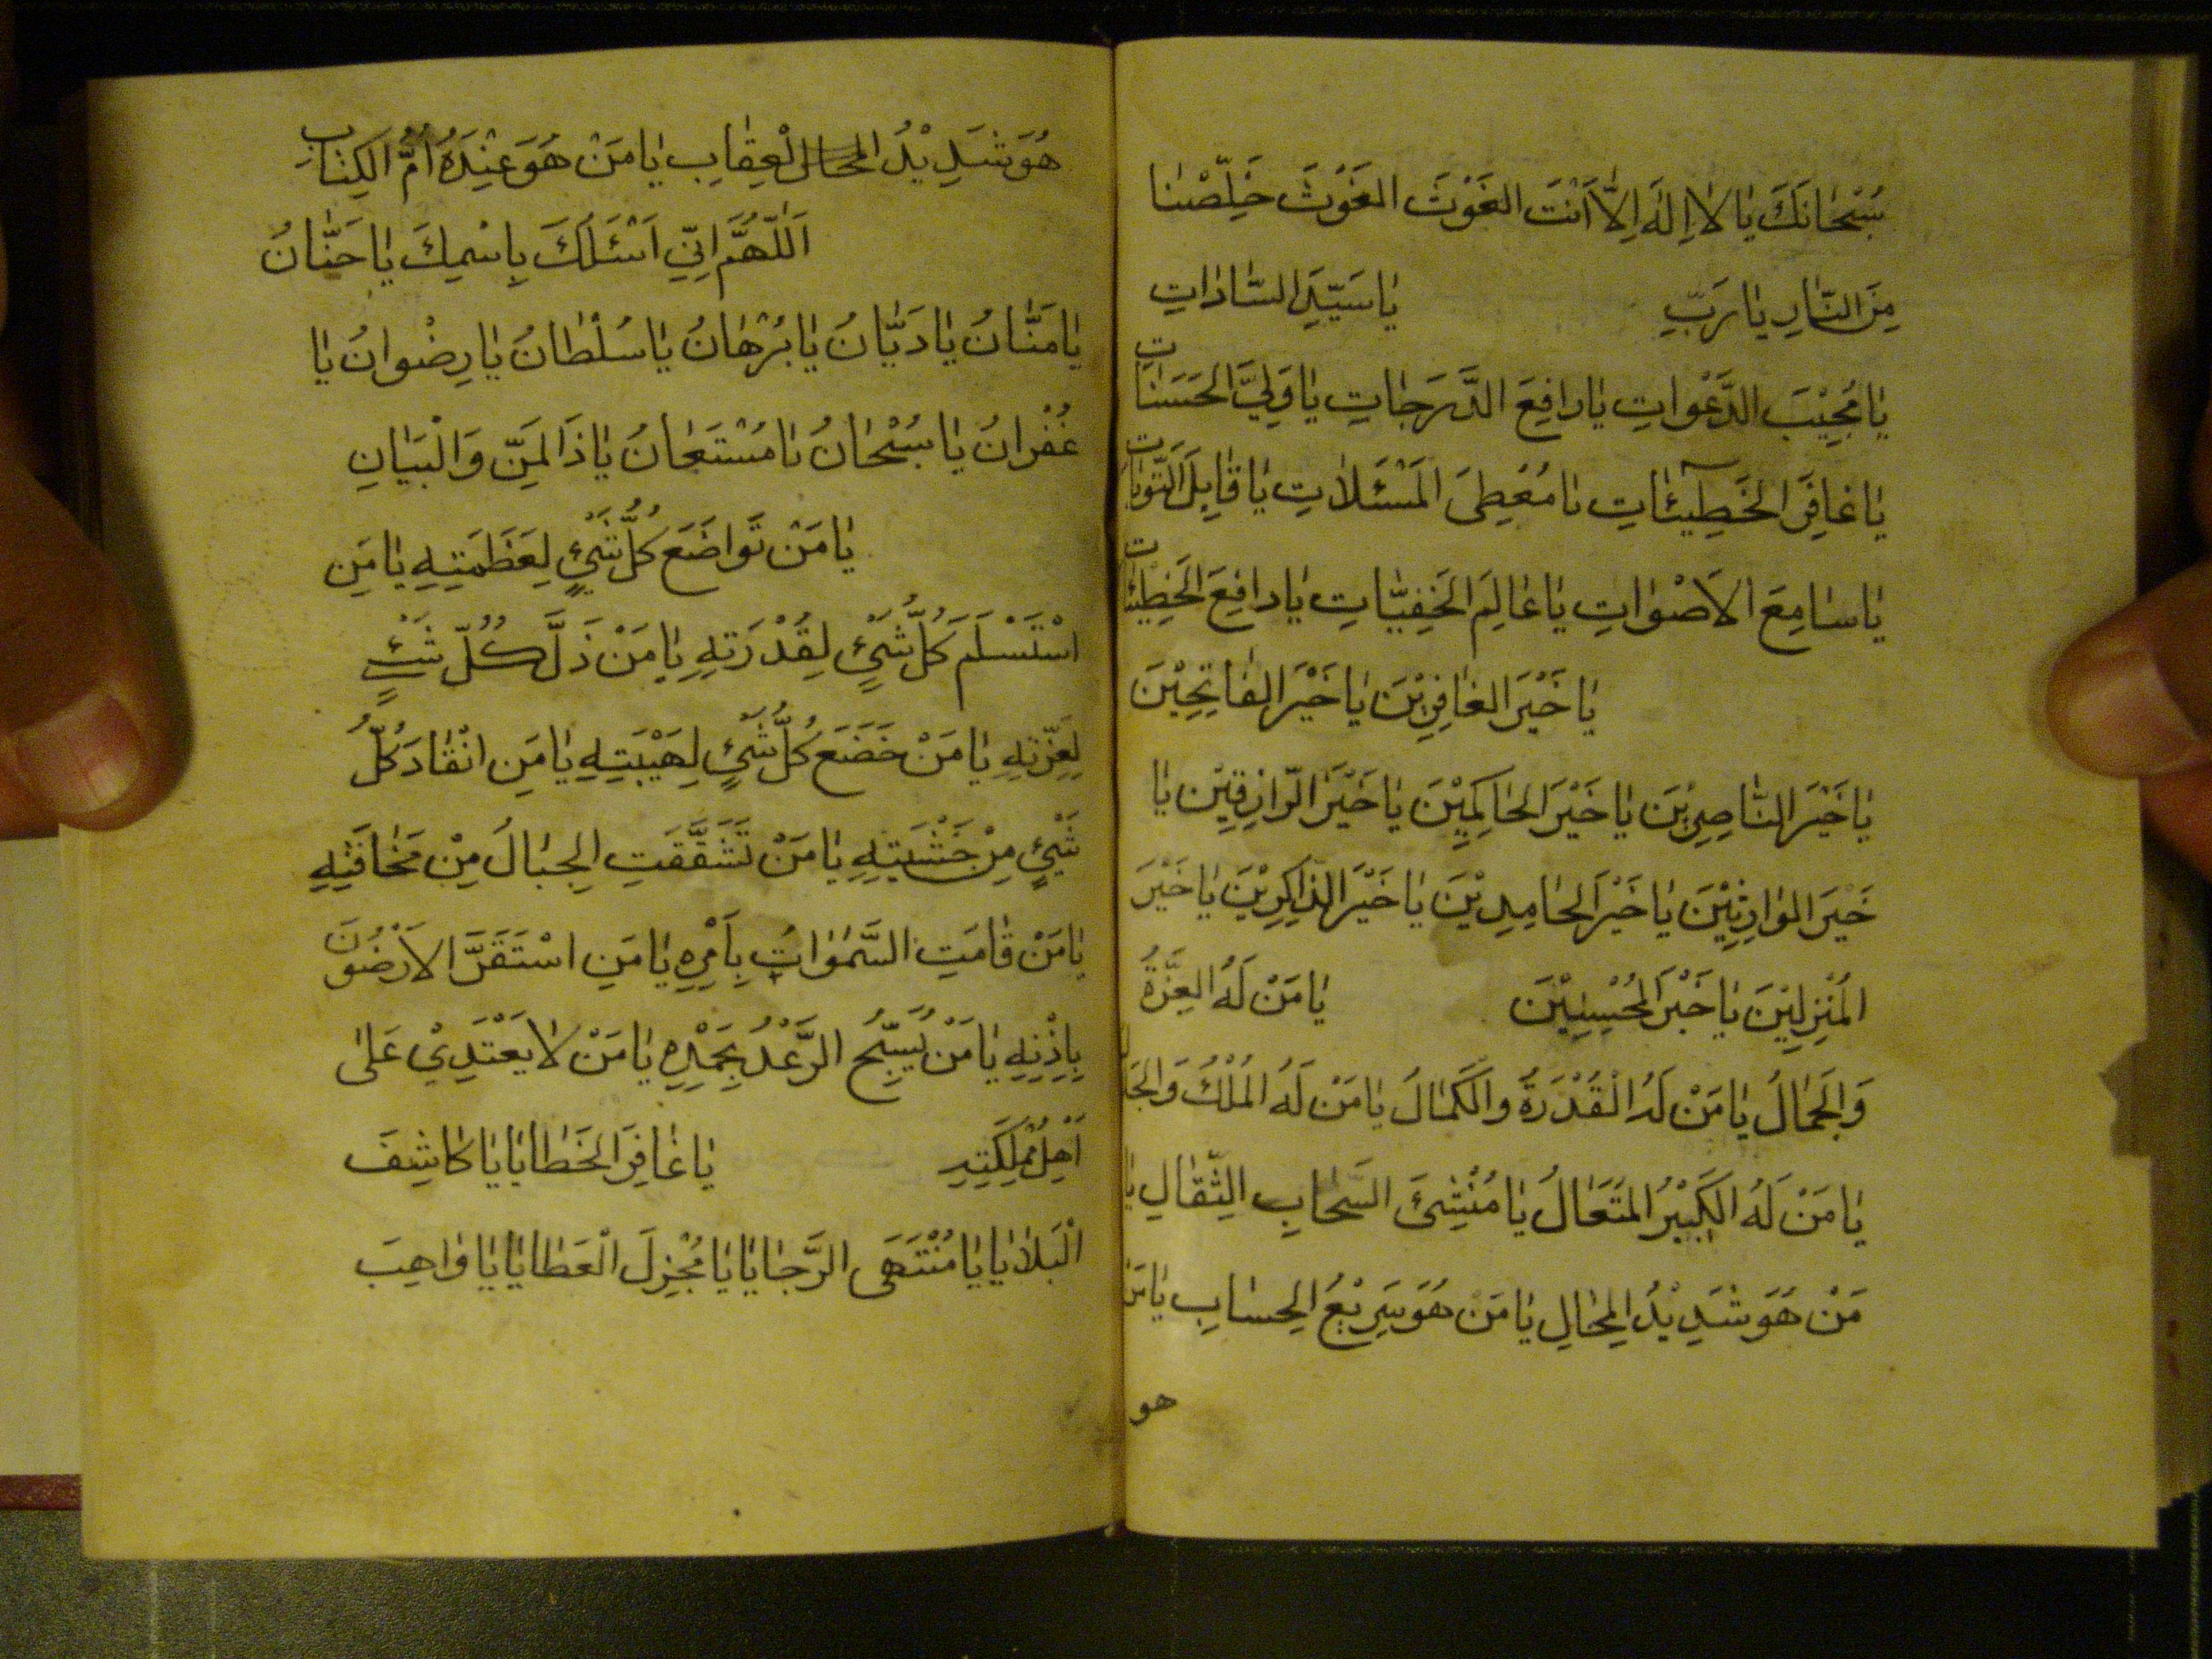 سُبْحَانَكَ يَا لَا اِلٰهَ اِلَّا اَنْتَ الغَوْثَ الغَوْثَ خَلِّصْنَا
مِنَ النَّارِ يَا رَبِّ يَا سَيِّدِ السَّادَاتِ
يَا مُجِيْبَ الدَّعْوَاتِ يَا رَافِعَ الدَّرَجَاتِ يَا وَلِيَّ الحَسَنَاتِ
يَا غَافِرَ الخَطِيْئَاتِ يَا مُعْطِيَ المَسْئَلَاتِ يَا قَابِلَ التَّوْبَاتِ
يَا سَامِعَ الاَصْوَاتِ يَا عَالِمَ الخَفِيَّاتِ يَا دَافِعَ الخَطِيْئَاتِ
يَا خَيْرَ الغَافِرِيْنَ يَا خَيْرَ الفَاتِحِيْنَ
يَا خَيْرَ النَّاصِرِيْنَ يَا خَيْرَ الحَاكِمِيْنَ يَا خَيْرَ الرَّازِقِيْنَ يَا
خَيْرَ الوَارِثِيْنَ يَا خَيْرَ الحَامِدِيْنَ يَا خَيْرَ الذَّاكِرِيْنَ يَا خَيْرَ
المُنْزِلِيْنَ يَا خَيْرَ المُحْسِنِيْنَ يَا مَنْ لَهُ العِزَّةُ
وَالجَمَالُ يَا مَنْ لَهُ الْقُدْرَةُ وَالكَمَالُ يَا مَنْ لَهُ المُلْكُ وَالجَلَا
يَا مَنْ لَهُ الكَبِيْرُ المُتَعَالُ يَا مُنْشِئَ السَّحَابِ الثِّقَالِ يَا
مَنْ هُوَ شَدِيْدُ المِحَالِ يَا مَنْ هُوَ سَرِيْعُ الحِسَابِ يَا مَنْ
هو
هُوَ شَدِيْدُ المحال العِقَابِ يَا مَنْ هُوَ عِنْدَهُ اُمُّ الكِتَابِ
اَللّٰهُمَّ اِنِّي اَسْئَلُكَ بِاسْمِكَ يَا حَنَّانُ
يَا مَنَّانُ يَا دَيَّانُ يَا بُرْهَانُ يَا سُلْطَانُ يَا رِضْوَانُ يَا
غُفْرَانُ يَا سُبْحَانُ يَا مُسْتَعَانُ يَا ذَا المَنِّ وَالْبَيَانِ
يَا مَنْ تَوَاضَعَ كُلُّ شَيْءٍ لِعَظَمَتِهِ يَا مَنِ
اسْتَسْلَمَ كُلُّ شَيْءٍ لِقُدْرَتِهِ يَا مَنْ ذَلَّ كُلُّ شَيْءٍ
لِعِزَّتِهِ يَا مَنْ خَضَعَ كُلُّ شَيْءٍ لِهَيْبَتِهِ يَا مَنِ انْقَادَ كُلُّ
شَيْءٍ مِنْ خَشْيَتِهِ يَا مَنْ تَشَقَّقَتِ الجِبَالُ مِنْ مَخَافَتِهِ
يَا مَنْ قَامَتِ السَّمٰوَاتُ بِاَمْرِهِ يَا مَنِ اسْتَقَرَّ الاَرَضُوْنَ
بِاِذْنِهِ يَا مَنْ يُسَبِّحُ الرَّعْدُ بِحَمْدِهِ يَا مَنْ لَا يَعْتَدِيْ عَلَى
اَهْلِ مَمْلِكَتِهِ يَا غَافِرَ الخَطَايَا يَا كَاشِفَ
الْبَلَايَا يَا مُنْتَهَى الرَّجَايَا يَا مُجْزِلَ الْعَطَايَا يَا وَاهِبَ